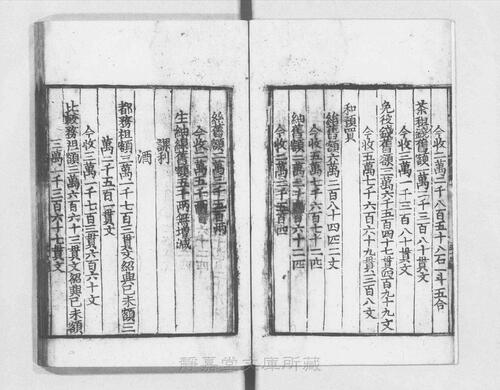 今收二萬二千八百五十八石一斗五合
茶租錢舊額一萬二千三百八十貫文
今收一萬一千三百八十貫文
免役錢舊額三萬六千五百四十七貫四百九十九文
今收五萬七千六百六十九貫三百八文
和預買
紬舊額六萬三百八十四匹二丈
今收五萬七千六百七十一匹
紬舊額二萬三千六百六十二匹
今收二萬二千三百四
絲舊額二萬三千五百兩
今收二萬五千
生紬線舊額五十兩無增減
課利
酒
都務祖額三萬一千七百三貫文紹興己未額三
萬二千五百一貫文
今收二萬一千七百三貫六百六十文
比較務祖額三萬六百六十三貫文紹興己未額
三萬一千三百六十七貫文
靜嘉堂文庫所藏